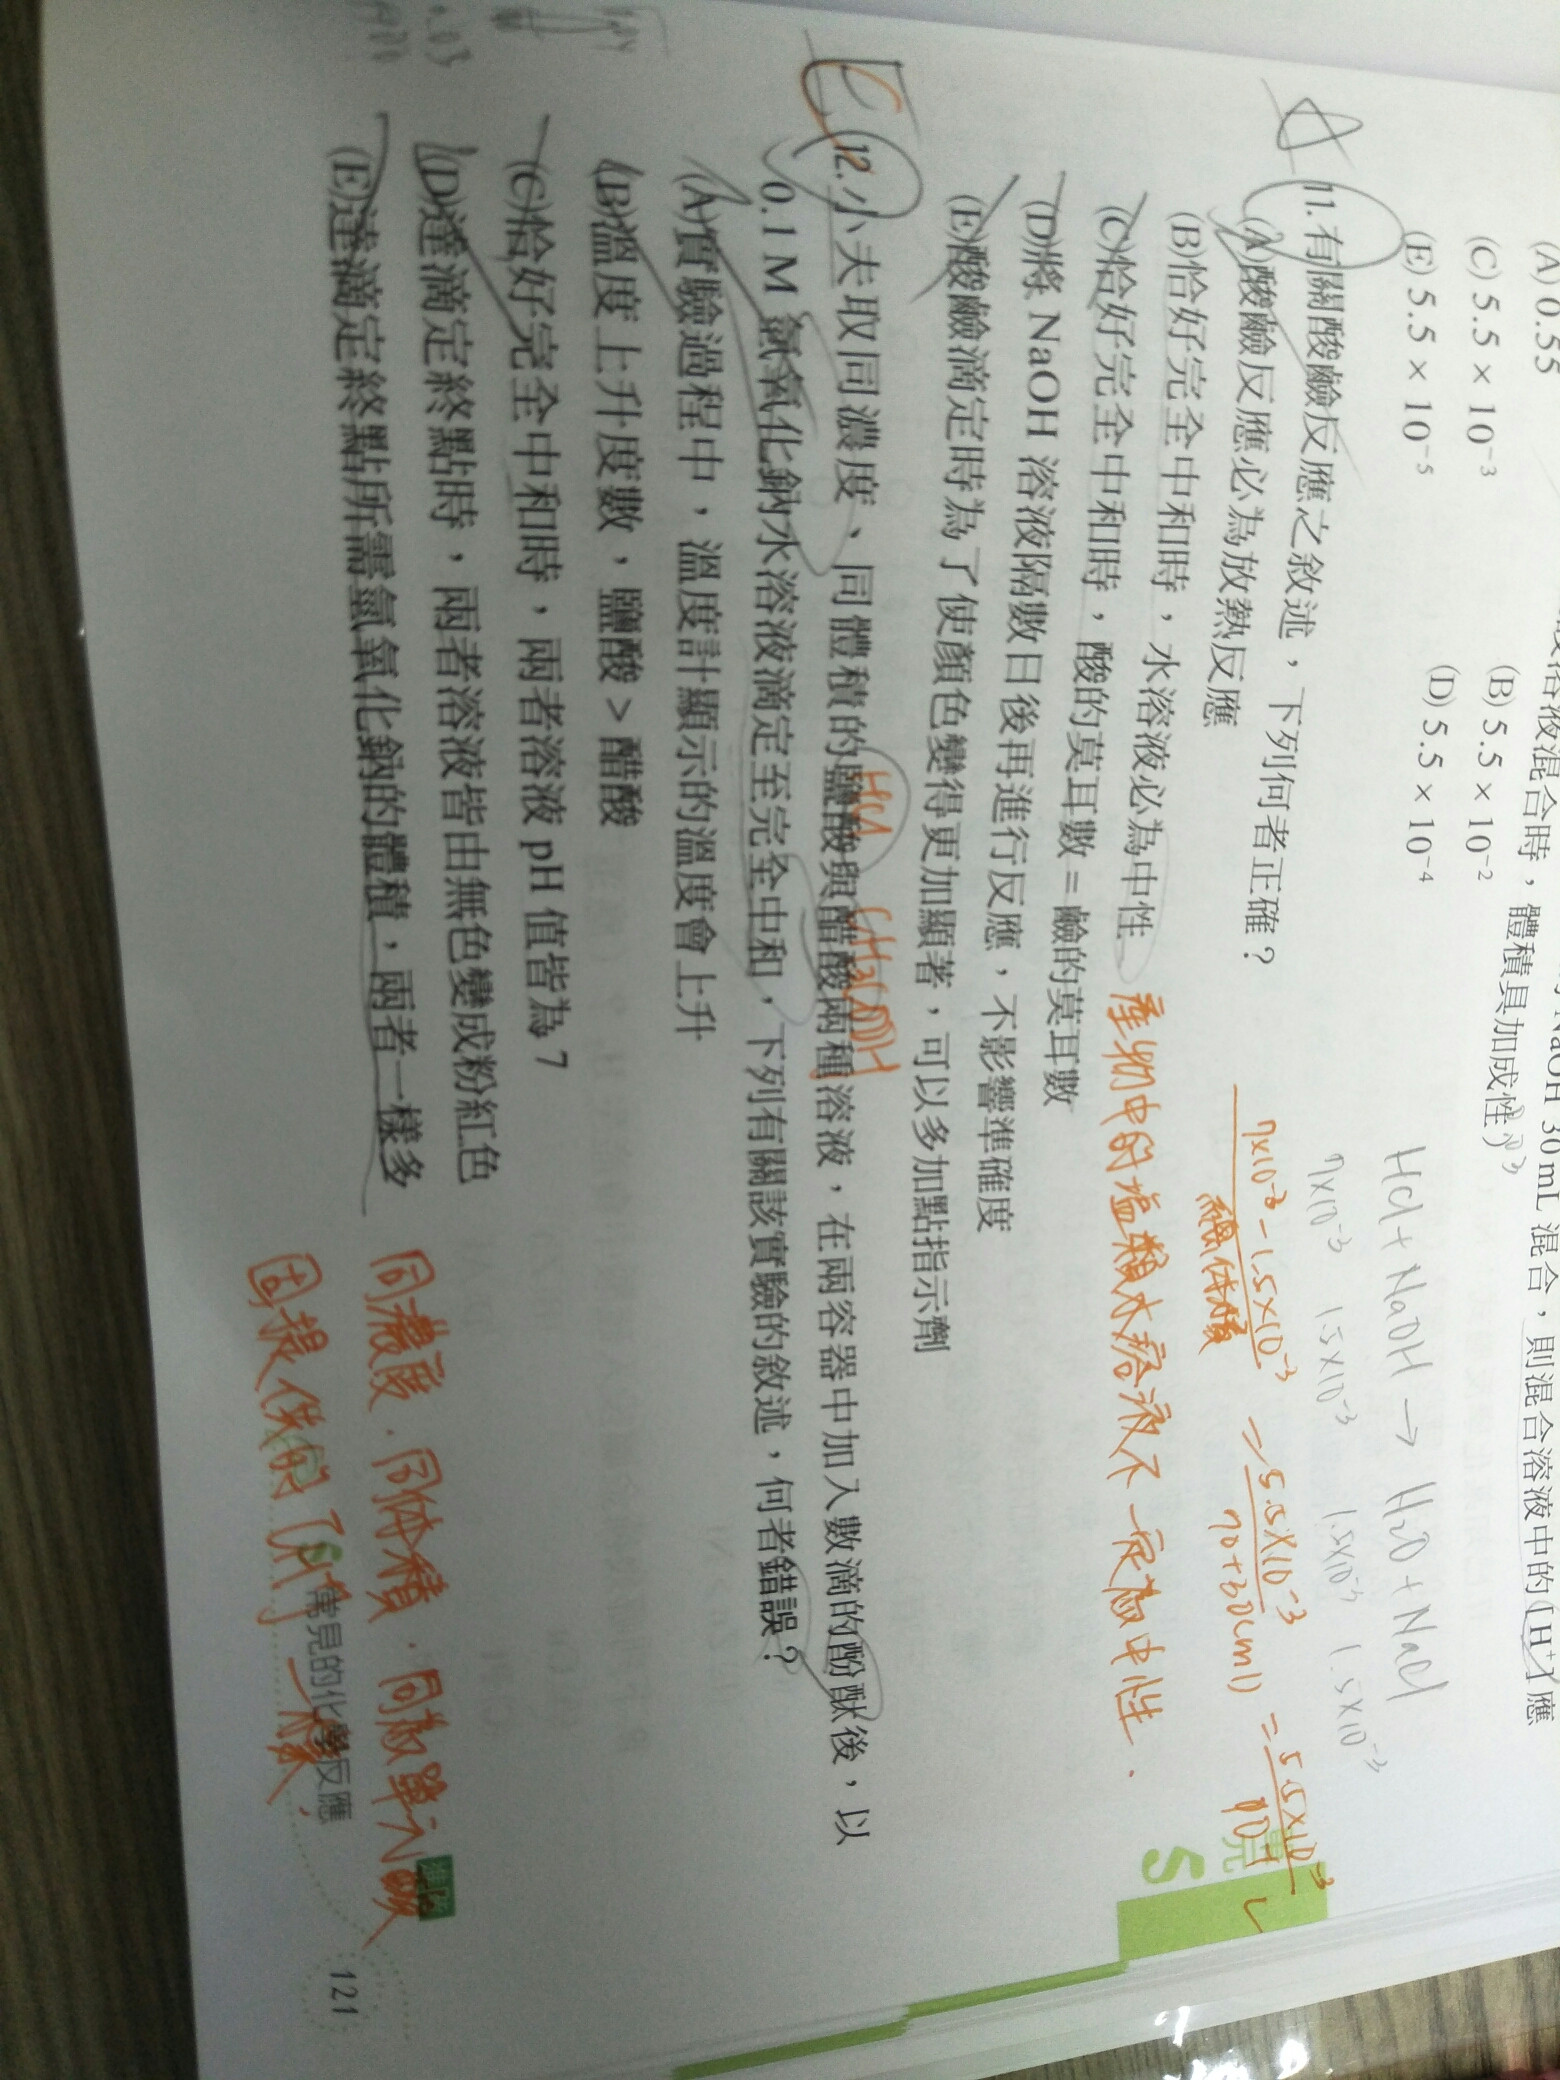 NaOH 30 mL 混合，則混合溶液中的 [H⁺] 應
溶液混合時，體積具加成性）
(A) 0.55
(B) 5.5 × 10⁻²
(C) 5.5 × 10⁻³
(D) 5.5 × 10⁻⁴
(E) 5.5 × 10⁻⁵
HCl + NaOH → H₂O + NaCl
7×10⁻³ 1.5×10⁻³ 1.5×10⁻³ 1.5×10⁻³
7×10⁻³ - 1.5×10⁻³ = 5.5×10⁻³ = 5.5×10⁻³
總体積 70+30(ml)
11.有關酸鹼反應之敘述，下列何者正確？
(A)酸鹼反應必為放熱反應
(B)恰好完全中和時，水溶液必為中性
產物中的塩類水溶液不一定為中性.
(C)恰好完全中和時，酸的莫耳數＝鹼的莫耳數
(D)將 NaOH 溶液隔數日後再進行反應，不影響準確度
(E)酸鹼滴定時為了使顏色變得更加顯著，可以多加點指示劑
HCl CH3COOH
12.小夫取同濃度、同體積的鹽酸與醋酸兩種溶液，在兩容器中加入數滴的酚酞後，以
0.1 M 氫氧化鈉水溶液滴定至完全中和，下列有關該實驗的敘述，何者錯誤？
(A)實驗過程中，溫度計顯示的溫度會上升
(B)溫度上升度數，鹽酸 > 醋酸
(C)恰好完全中和時，兩者溶液 pH 值皆為 7
(D)達滴定終點時，兩者溶液皆由無色變成粉紅色
(E)達滴定終點所需氫氧化鈉的體積，兩者一樣多
同濃度．同体積．同為單元酸
因提供的[H⁺]一樣.
常見的化學反應
121